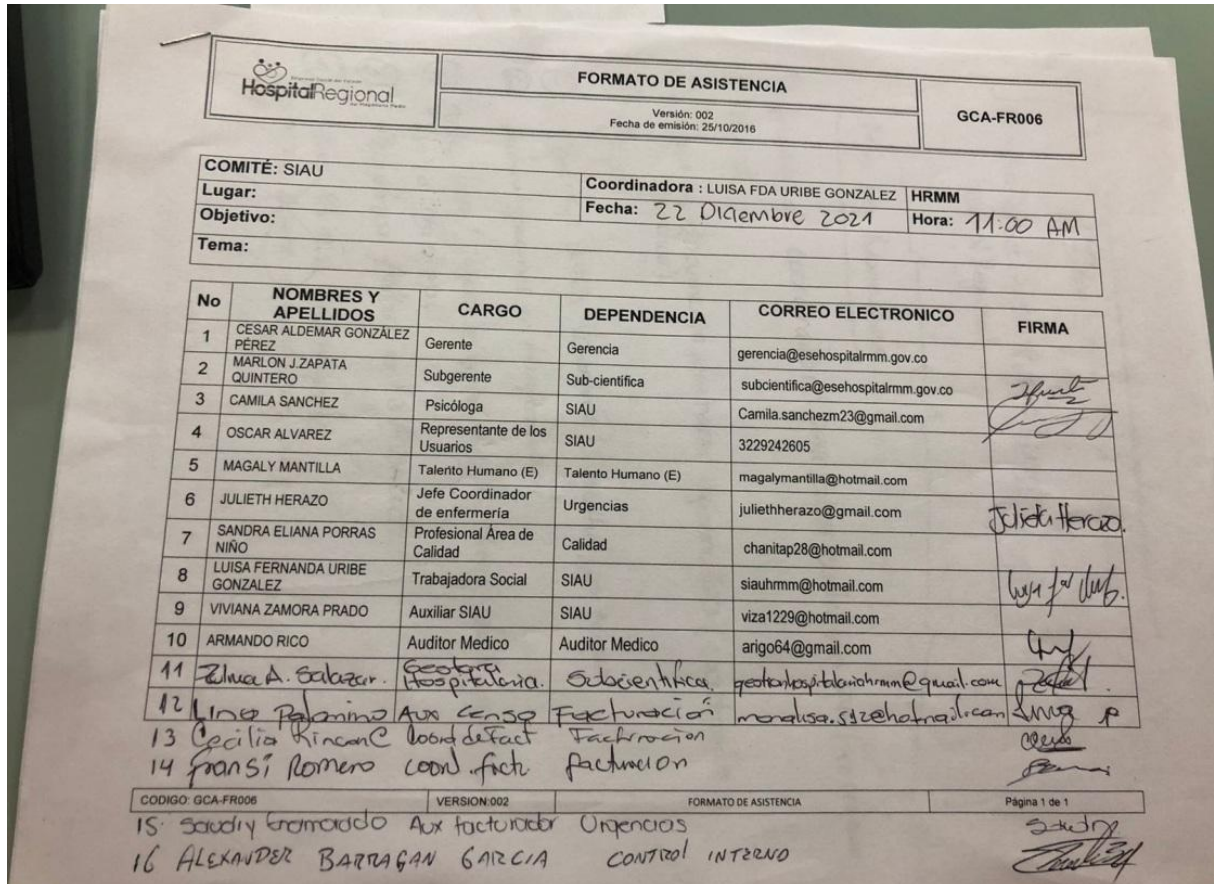 Hospital Regional
FORMATO DE ASISTENCIA
Versión: 002
Fecha de emisión: 25/10/2016
GCA-FR006
COMITÉ: SIAU
Coordinadora : LUISA FDA URIBE GONZALEZ HRMM
Lugar:
Fecha: 22 Diciembre 2021 Hora: 11:00 AM
Objetivo:
Tema:
No NOMBRES Y APELLIDOS CARGO DEPENDENCIA CORREO ELECTRONICO FIRMA
1 CESAR ALDEMAR GONZÁLEZ PÉREZ Gerente Gerencia gerencia@esehospitalrmm.gov.co
2 MARLON J.ZAPATA QUINTERO Subgerente Sub-cientifica subcientifica@esehospitalrmm.gov.co
3 CAMILA SANCHEZ Psicóloga SIAU Camila.sanchezm23@gmail.com
4 OSCAR ALVAREZ Representante de los Usuarios SIAU 3229242605
5 MAGALY MANTILLA Talento Humano (E) Talento Humano (E) magalymantilla@hotmail.com
6 JULIETH HERAZO Jefe Coordinador de enfermería Urgencias juliethherazo@gmail.com Julieth Herazo.
7 SANDRA ELIANA PORRAS NIÑO Profesional Área de Calidad Calidad chanitap28@hotmail.com
8 LUISA FERNANDA URIBE GONZALEZ Trabajadora Social SIAU siauhrmm@hotmail.com
9 VIVIANA ZAMORA PRADO Auxiliar SIAU SIAU viza1229@hotmail.com
10 ARMANDO RICO Auditor Medico Auditor Medico arigo64@gmail.com
11 A. Salazar. Gestora Hospitalaria. Subcientifica. gestionhospitalariahrmm@gmail.com
12 Palomino Aux Censo Facturación
13 Cecilia Rincon C Coord de Fact Facturacion
14 fransi Romero coord. fact. facturacion
CODIGO: GCA-FR006 VERSION:002 FORMATO DE ASISTENCIA Página 1 de 1
15. Aux facturador Urgencias
16 ALEXANDER BARRAGAN GARCIA CONTROL INTERNO